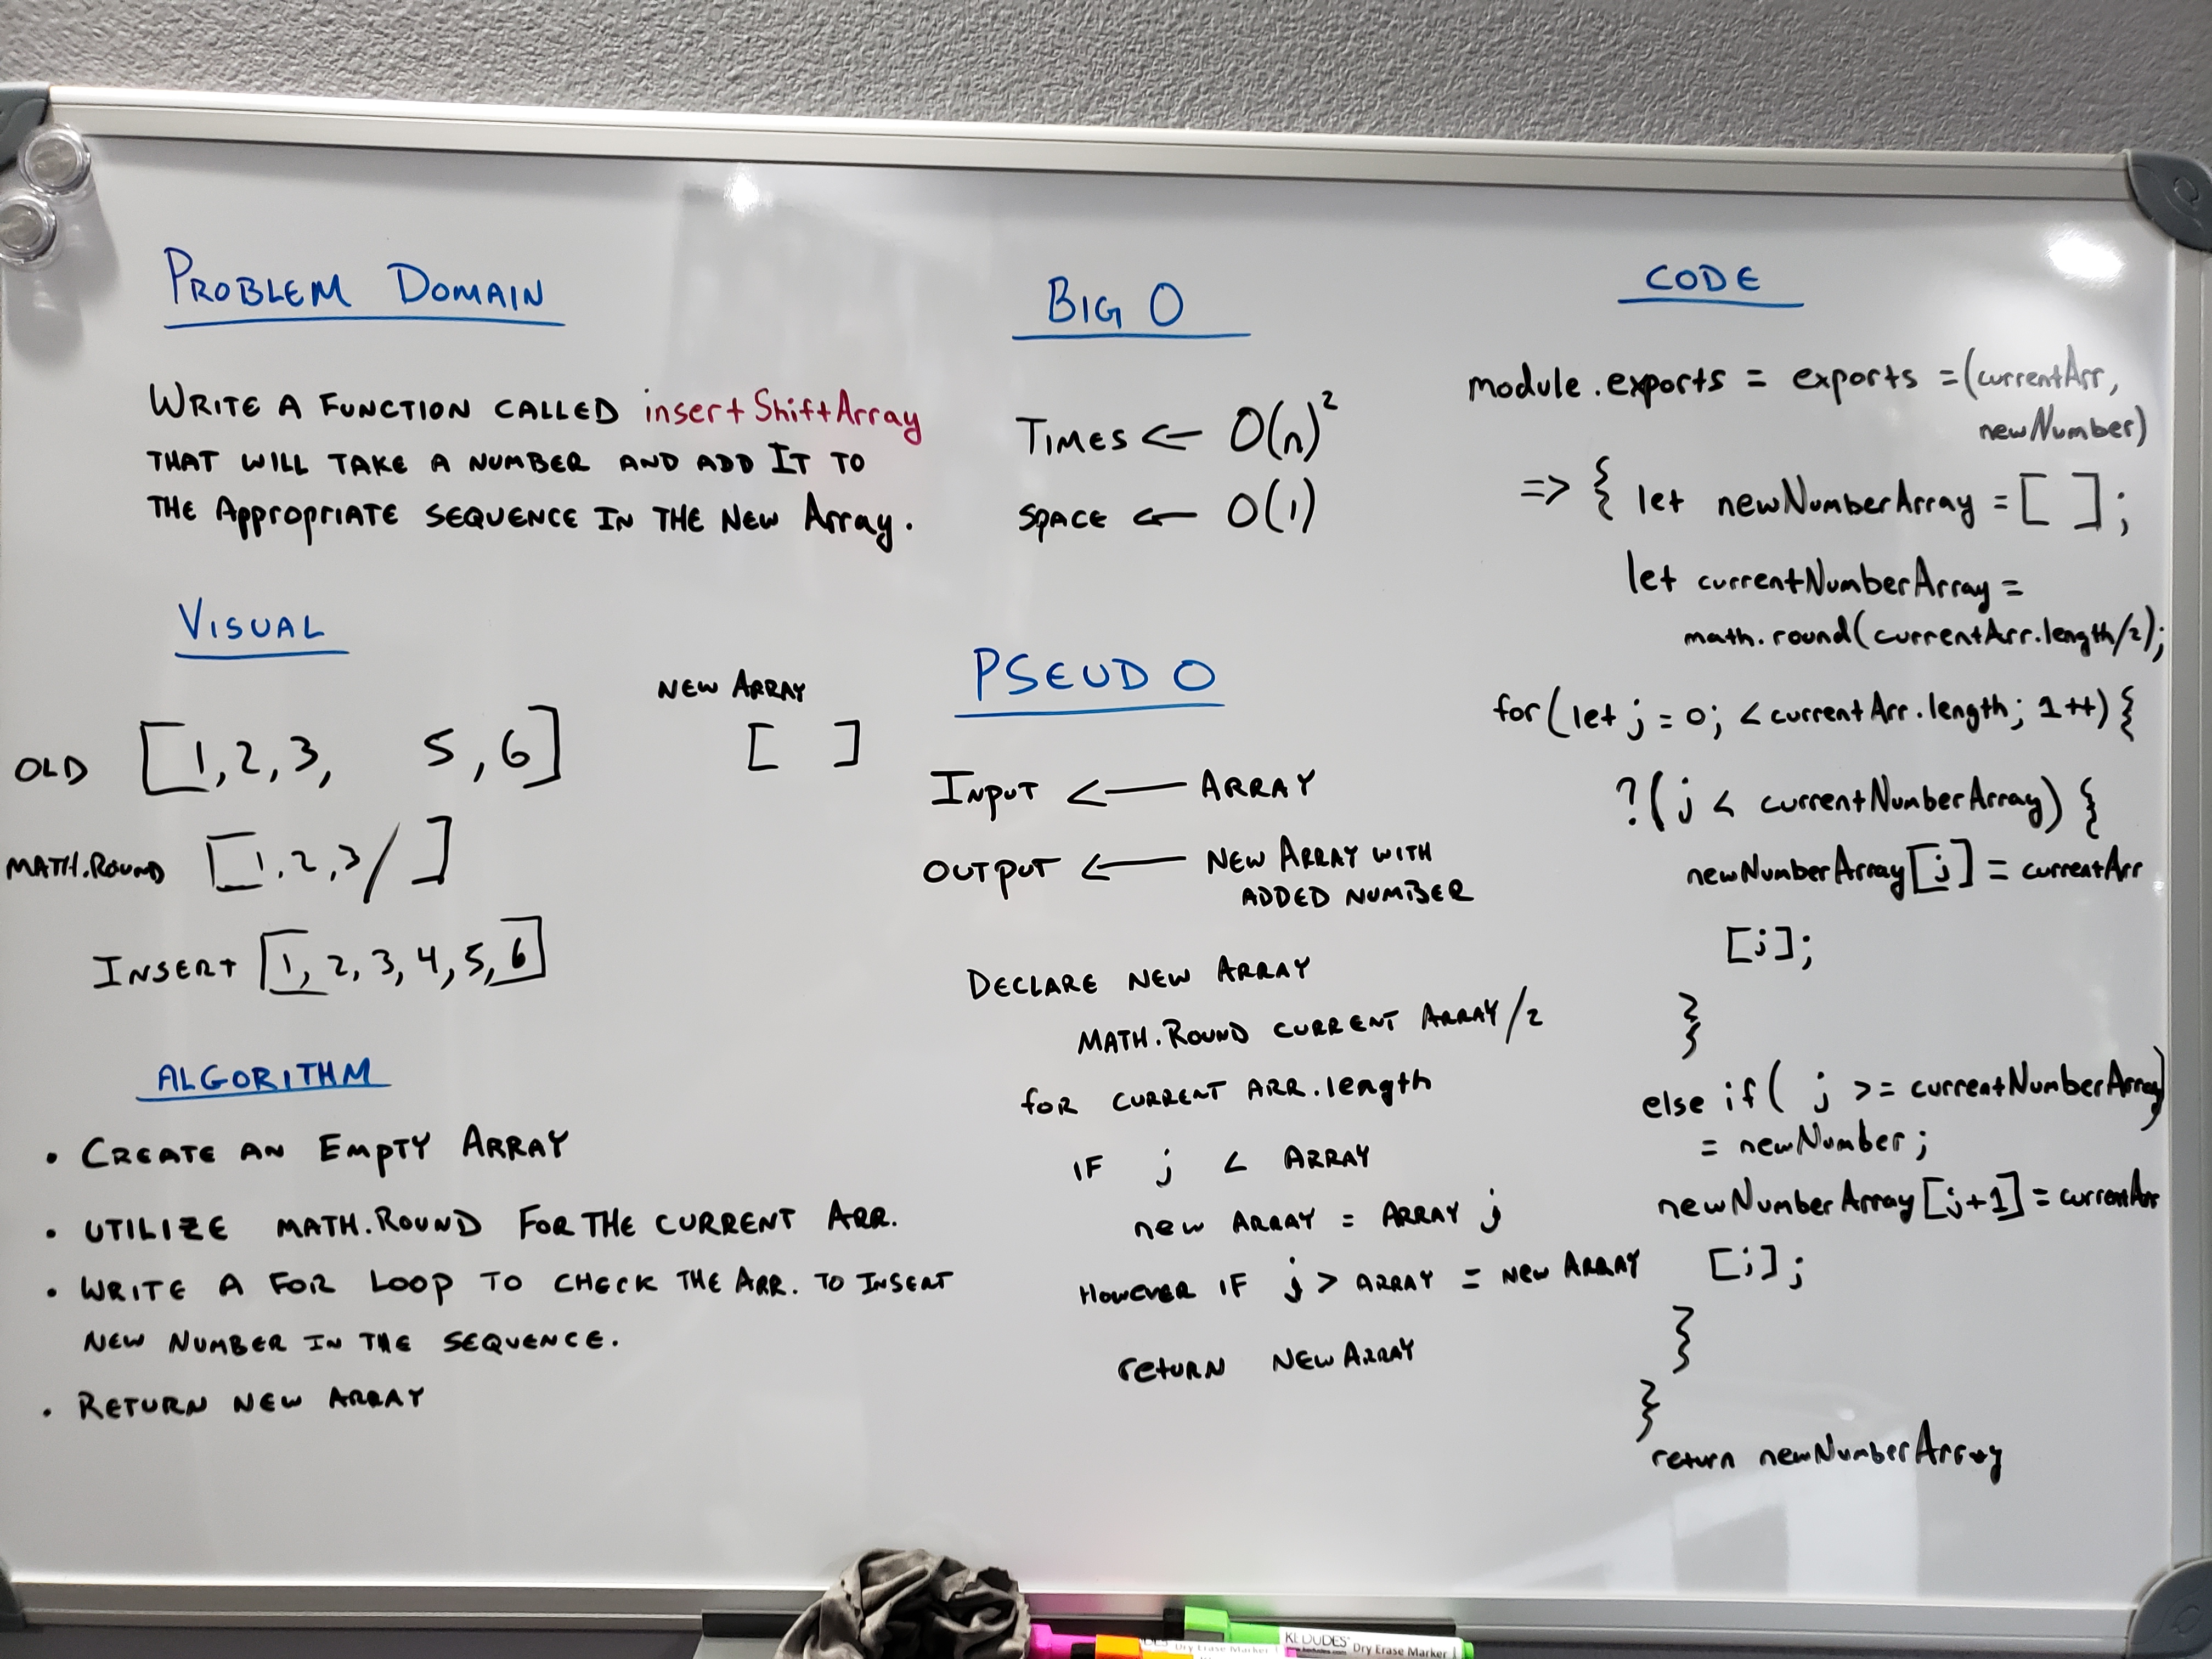 PROBLEM DOMAIN
WRITE A FUNCTION CALLED insertShiftArray
THAT WILL TAKE A NUMBER AND ADD IT TO
THE APPROPRIATE SEQUENCE IN THE NEW ARRAY.
VISUAL
NEW ARRAY
OLD [1, 2, 3, 5, 6] [ ]
MATH.ROUND [1, 2, 3/ ]
INSERT [1, 2, 3, 4, 5, 6]
ALGORITHM
• CREATE AN EMPTY ARRAY
• UTILIZE MATH.ROUND FOR THE CURRENT ARR.
• WRITE A FOR LOOP TO CHECK THE ARR. TO INSERT
NEW NUMBER IN THE SEQUENCE.
• RETURN NEW ARRAY
BIG O
TIMES <— O(n)²
SPACE <— O(1)
PSEUDO
INPUT <— ARRAY
OUTPUT <— NEW ARRAY WITH
ADDED NUMBER
DECLARE NEW ARRAY
MATH.ROUND CURRENT ARRAY/2
for CURRENT ARR.length
IF j < ARRAY
new ARRAY = ARRAY j
However IF j > ARRAY = NEW ARRAY
return NEW ARRAY
CODE
module.exports = exports = (currentArr,
newNumber)
=> { let newNumberArray = [ ];
let currentNumberArray =
math.round(currentArr.length/2);
for(let j = 0; < currentArr.length; 1++) {
?(j < currentNumberArray) {
newNumberArray[j] = currentArr
[j];
}
else if( j >= currentNumberArray)
= newNumber;
newNumberArray[j+1] = currentArr
[j];
}
}
return newNumberArray
KEDUDES Dry Erase Marker
Dry Erase Marker